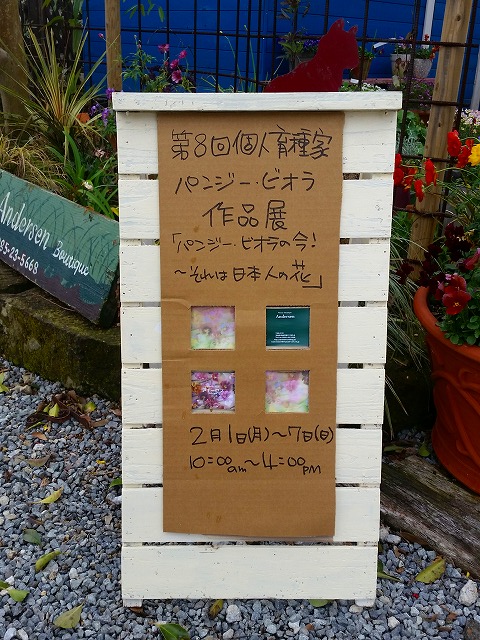 第8回個人育種家
パンジー・ビオラ
作品展
「パンジー・ビオラの今!
〜それは日本人の花」
Andersen
2月1日(月)〜7日(日)
10:00am〜4:00PM
Andersen Boutique
95-23-5668